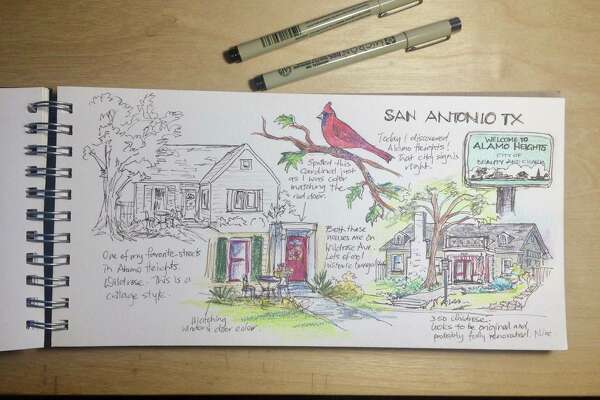 SAN ANTONIO TX
WELCOME TO
ALAMO HEIGHTS
CITY OF
BEAUTY AND CHARM
Today I discovered
Alamo Heights!
That city sign is
right.
Spotted this
Cardinal just
as I was color
matching the
red door.
Both these
houses are on
Wildrose Ave.
Lots of
historic
One of my favorite streets
in Alamo Heights.
Wildrose. This is a
cottage style.
Matching
window & door color
350 Wildrose
looks to be original and
probably fully renovated. Nice.